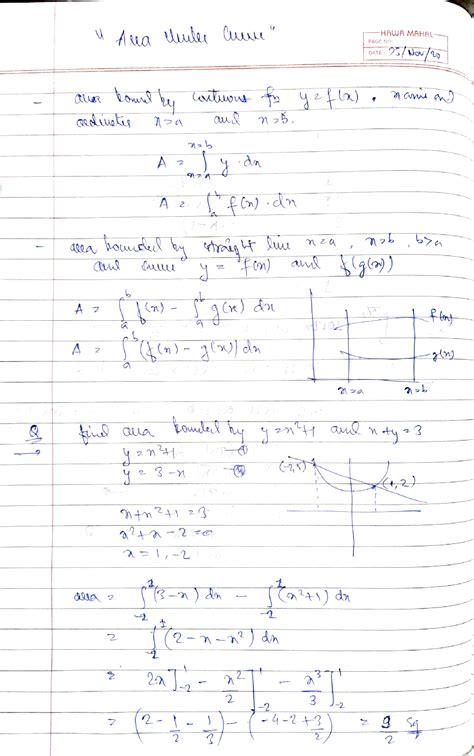 " Area Under Curve "
HAWA MAHAL
PAGE NO.
DATE: 25/Nov/20
- area bound by continuous fn y = f(x), x axis and
ordinates x=a and x=b.
A = ∫_{x=a}^{x=b} y · dx
A = ∫_a^b f(x) · dx
- area bounded by straight line x=a, x=b, b>a
and curve y = f(x) and f(g(x))
A = ∫_a^b f(x) - ∫_a^b g(x) dx
A = ∫_a^b (f(x) - g(x)) dx
f(x)
g(x)
x=a x=b
Q find area bounded by y = x²+1 and x+y = 3
y = x²+1 - ①
y = 3-x - ②
(-2,5)
(1,2)
x+x²+1 = 3
x²+x-2 = 0
x = 1, -2
area = ∫_{-2}^1 (3-x) dx - ∫_{-2}^1 (x²+1) dx
= ∫_{-2}^1 (2-x-x²) dx
= 2x]_{-2}^1 - x²/2]_{-2}^1 - x³/3]_{-2}^1
= (2 - 1/2 - 1/3) - (-4-2+3/2) = 9/2 sq